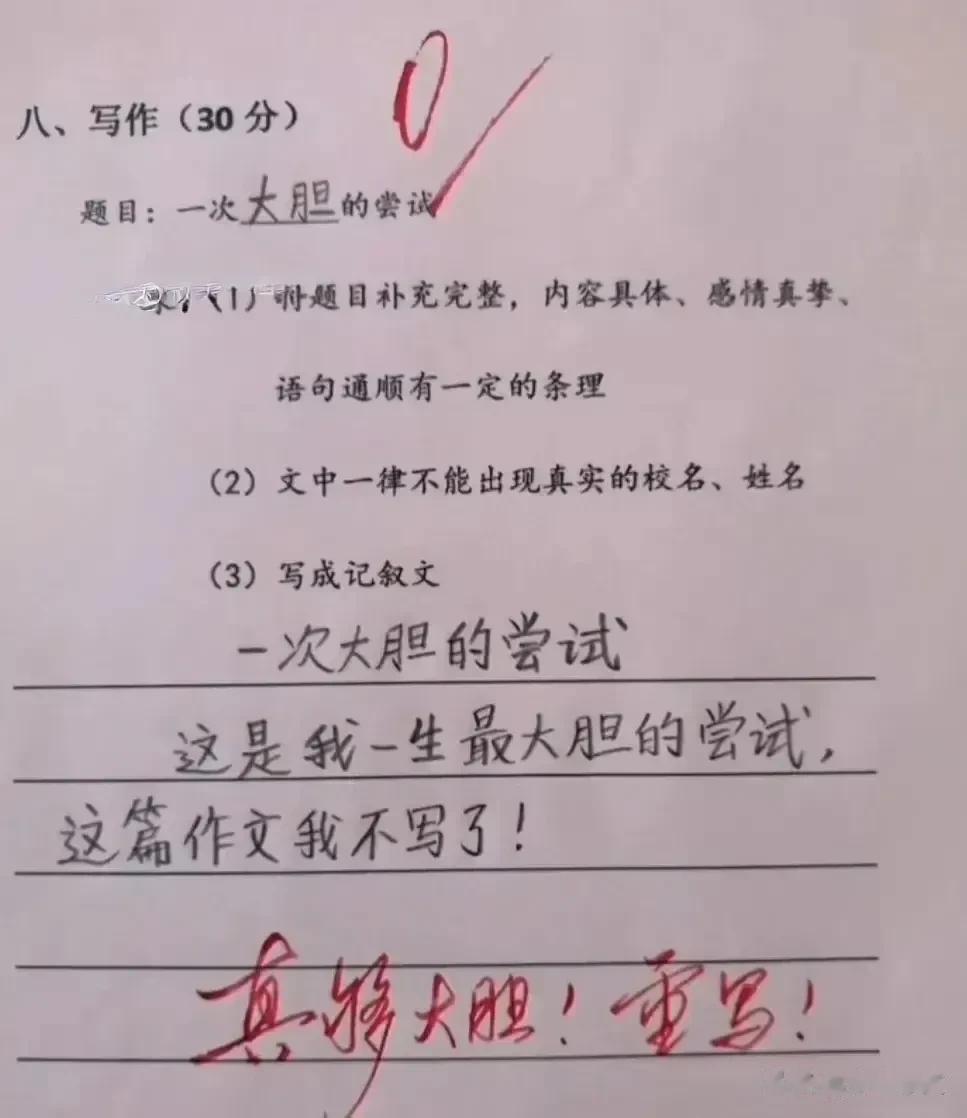 0
八、写作（30 分）
题目：一次大胆的尝试
（1）将题目补充完整，内容具体、感情真挚、
语句通顺有一定的条理
（2）文中一律不能出现真实的校名、姓名
（3）写成记叙文
一次大胆的尝试
这是我一生最大胆的尝试，
这篇作文我不写了！
真够大胆！重写！